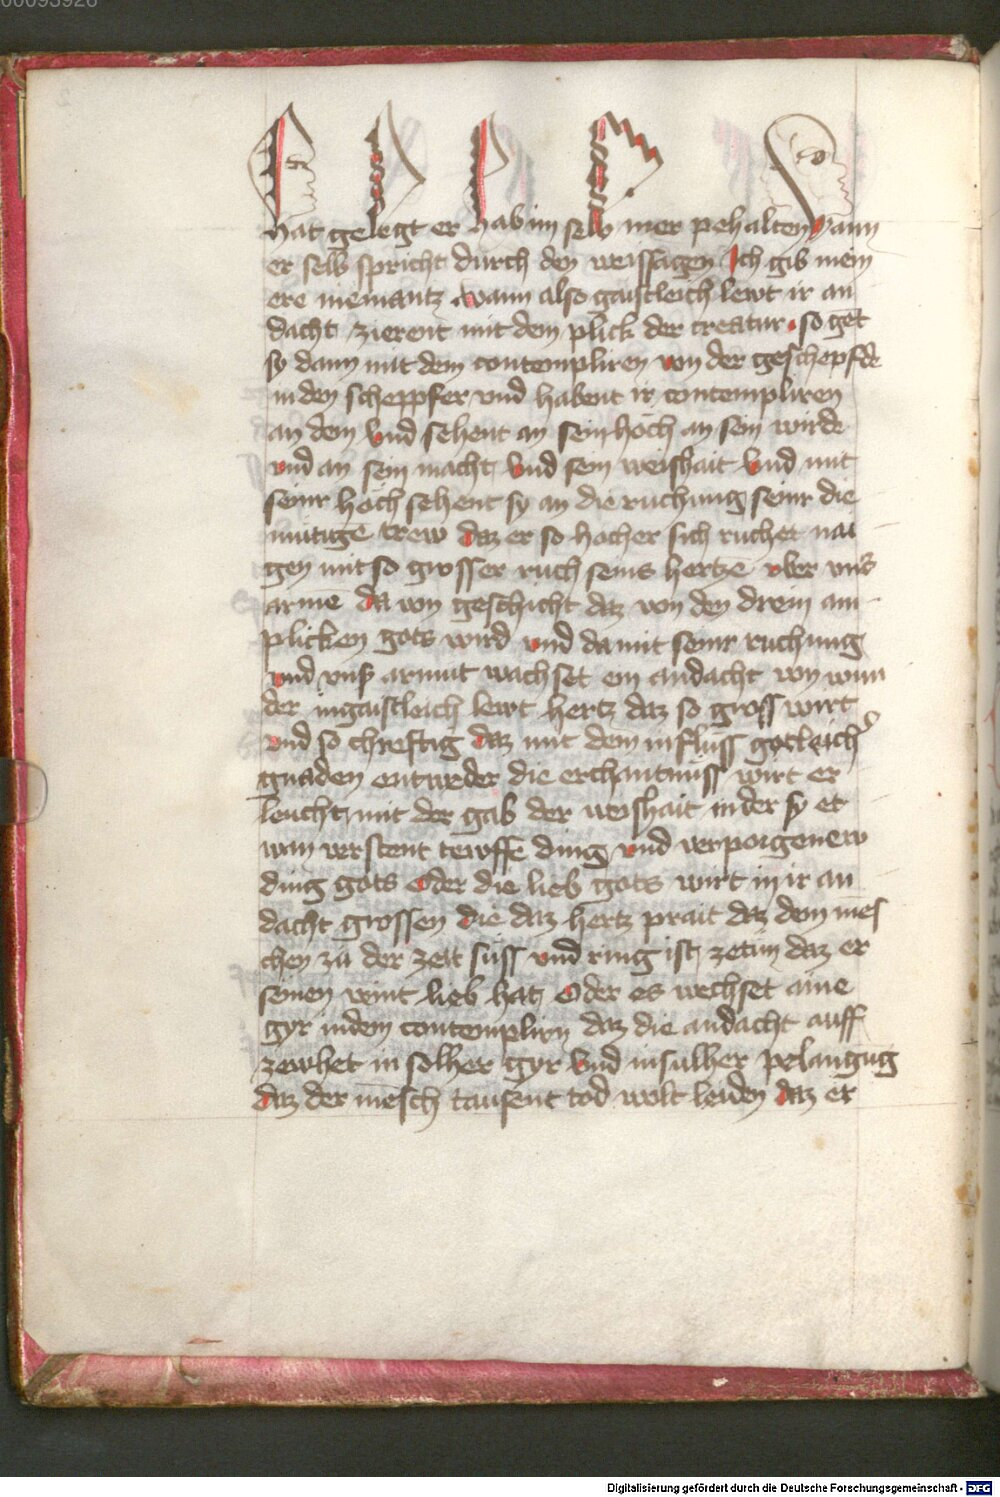 00093926
hat gelegt er hab im selb mer pehalten Wann
er selb spricht durch den weissagen Ich gib mein
ere niemantz wann also gaistleich lewt ir an
dacht zierent mit dem plick der creatur so get
sy dann mit dem contempliren von der geschepfde
in den scheppfer vnd habent ir contempliren
an dem Vnd sehent an sein hoch an sein wirde
vnd an sein macht Vnd sein weishait Vnd mit
seinr hoch sehent sy an die ruchung seinr die
mutigē trew daz er so hocher sich ruchet nai
gen mit so grosser ruch seins hertzē vber vns
armē da von geschicht daz von den drein an
plicken gots wird vnd da mit seinr ruchung
vnd vnsꝰ armut wachset ein andacht von wun
der in gaistleich lewt hertz daz so gross wirt
vnd so chreftig daz mit dem influss gotleichꝰ
gnaden entweder die erchantnüss wirt er
leucht mit der gab der weishait in der sy et
wan verstent tewffe ding vnd verporgenew
ding gots Oder die lieb gots wirt in ir an
dacht grossen die daz hertz prait daz dem mēs
chen zu der zeit süss vnd ring ist zetün daz er
seinen veint lieb hat Oder es wechset aine
gyr in dem contemplirn daz die andacht auff
zewhet in solher gyr Vnd in sulher pelangūg
daz der mēsch tausent tod wolt leiden daz er
Digitalisierung gefördert durch die Deutsche Forschungsgemeinschaft - DFG